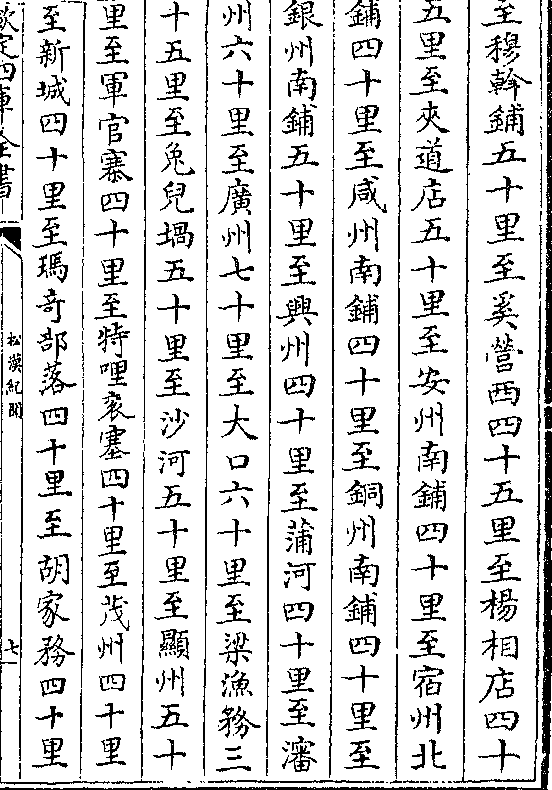 至穆斡鋪五十里至奚營西四十五里至楊相店四十
五里至夾道店五十里至安州南鋪四十里至宿州北
鋪四十里至咸州南鋪四十里至銅州南鋪四十里至
銀州南鋪五十里至興州四十里至蒲河四十里至瀋
州六十里至廣州七十里至大口六十里至梁漁務三
十五里至兔兒堝五十里至沙河五十里至顯州五十
里至軍官寨四十里至特哩衮寨四十里至茂州四十里
至新城四十里至瑪竒部落四十里至胡家務四十里
欽定四庫全書
松漠紀聞
七